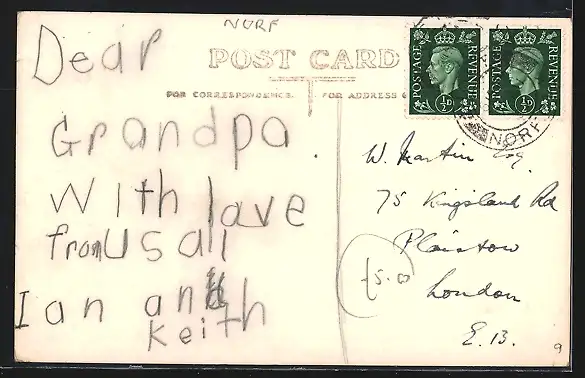 NORF
POST CARD
FOR CORRESPONDENCE. FOR ADDRESS
POSTAGE REVENUE ½D
POSTAGE REVENUE ½D
NORF
Dear
Grandpa.
With lave
from us all
Ian and
Keith
W. Martin Esq
75 Kingsland Rd
Plaistow
London
E.13.
£5.0
9